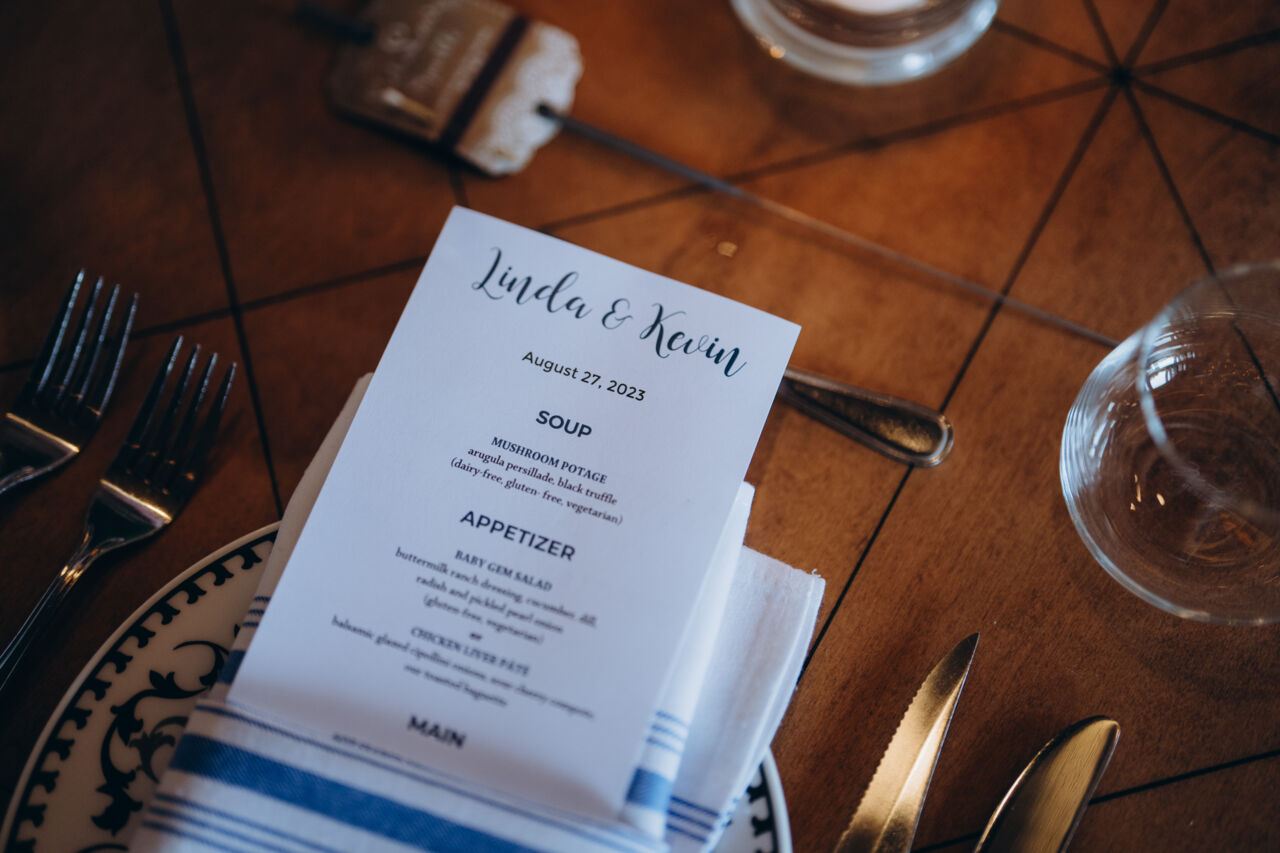 Linda & Kevin
August 27, 2023
SOUP
MUSHROOM POTAGE
arugula persillade, black truffle
(dairy-free, gluten- free, vegetarian)
APPETIZER
BABY GEM SALAD
buttermilk ranch dressing, cucumber, dill,
radish and pickled pearl onion
(gluten-free, vegetarian)
or
CHICKEN LIVER PATE
balsamic glazed cipollini onions, sour cherry compote,
toasted baguette
MAIN